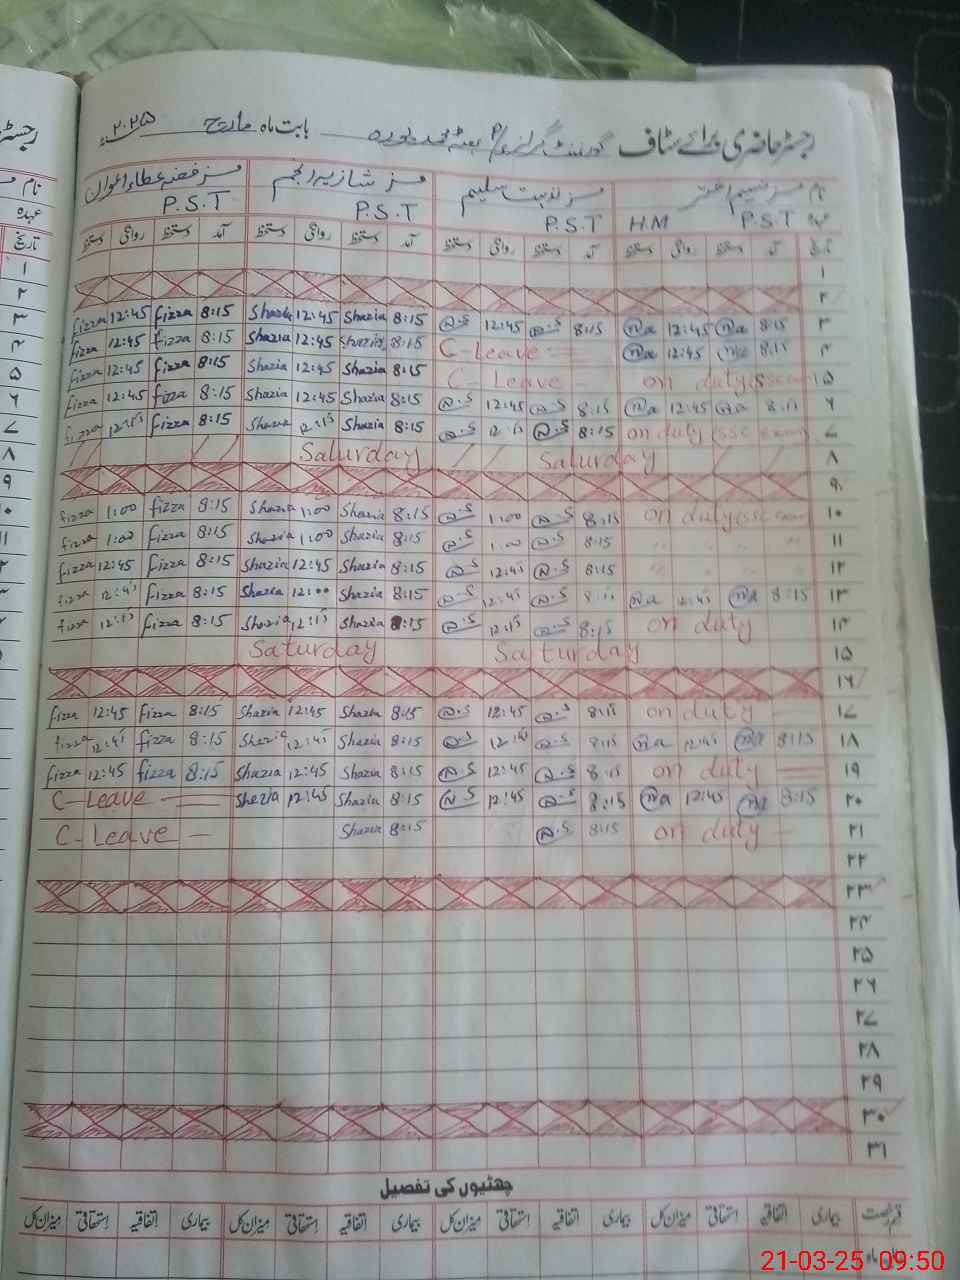 رجسٹر حاضری برائے سٹاف گورنمنٹ گرلز بابت ماہ مارچ ۲۰۲۵
نام مسز نسیم اختر مسز سلیم مسز شازیہ انجم مسز فضہ عطاء اعوان
عہدہ P.S.T H.M P.S.T P.S.T P.S.T
تاریخ آمد دستخط روانگی دستخط آمد دستخط روانگی دستخط آمد دستخط روانگی دستخط آمد دستخط روانگی دستخط
۱
۲
fizza 12:45 fizza 8:15 Shazia 12:45 Shazia 8:15 12:45 8:15 12:45 8:15 ۳
fizza 12:45 fizza 8:15 Shazia 12:45 Shazia 8:15 C-Leave 12:45 8:15 ۴
fizza 12:45 fizza 8:15 Shazia 12:45 Shazia 8:15 C-Leave on duty ۵
fizza 12:45 fizza 8:15 Shazia 12:45 Shazia 8:15 12:45 8:15 12:45 8:15 ۶
fizza 12:15 fizza 8:15 Shazia 12:15 Shazia 8:15 12:15 8:15 on duty (SSC Exam ۷
Saturday Saturday ۸
۹
fizza 1:00 fizza 8:15 Shazia 1:00 Shazia 8:15 1:00 8:15 on duty (SSC Exam ۱۰
fizza 1:00 fizza 8:15 Shazia 1:00 Shazia 8:15 1:00 8:15 " " " " ۱۱
fizza 12:45 fizza 8:15 Shazia 12:45 Shazia 8:15 12:45 8:15 " " " " ۱۲
fizza 12:45 fizza 8:15 Shazia 12:00 Shazia 8:15 12:45 8:15 12:45 8:15 ۱۳
fizza 12:15 fizza 8:15 Shazia 12:15 Shazia 8:15 12:15 8:15 on duty ۱۴
Saturday Saturday ۱۵
۱۶
fizza 12:45 fizza 8:15 Shazia 12:45 Shazia 8:15 12:45 8:15 on duty ۱۷
fizza 12:45 fizza 8:15 Shazia 12:45 Shazia 8:15 8:15 12:45 8:15 ۱۸
fizza 12:45 fizza 8:15 Shazia 12:45 Shazia 8:15 12:45 8:15 on duty ۱۹
C-Leave Shazia 12:45 Shazia 8:15 12:45 8:15 12:45 8:15 ۲۰
C-Leave Shazia 8:15 8:15 on duty ۲۱
۲۲
۲۳
۲۴
۲۵
۲۶
۲۷
۲۸
۲۹
۳۰
۳۱
چھٹیوں کی تفصیل
قسم رخصت بیماری اتفاقیہ استحقاقی میزان کل بیماری اتفاقیہ استحقاقی میزان کل بیماری اتفاقیہ استحقاقی میزان کل بیماری اتفاقیہ استحقاقی میزان کل
21-03-25 09:50